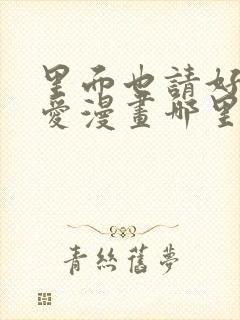 里而也請好
愛漫畫哪里
青絲舊夢